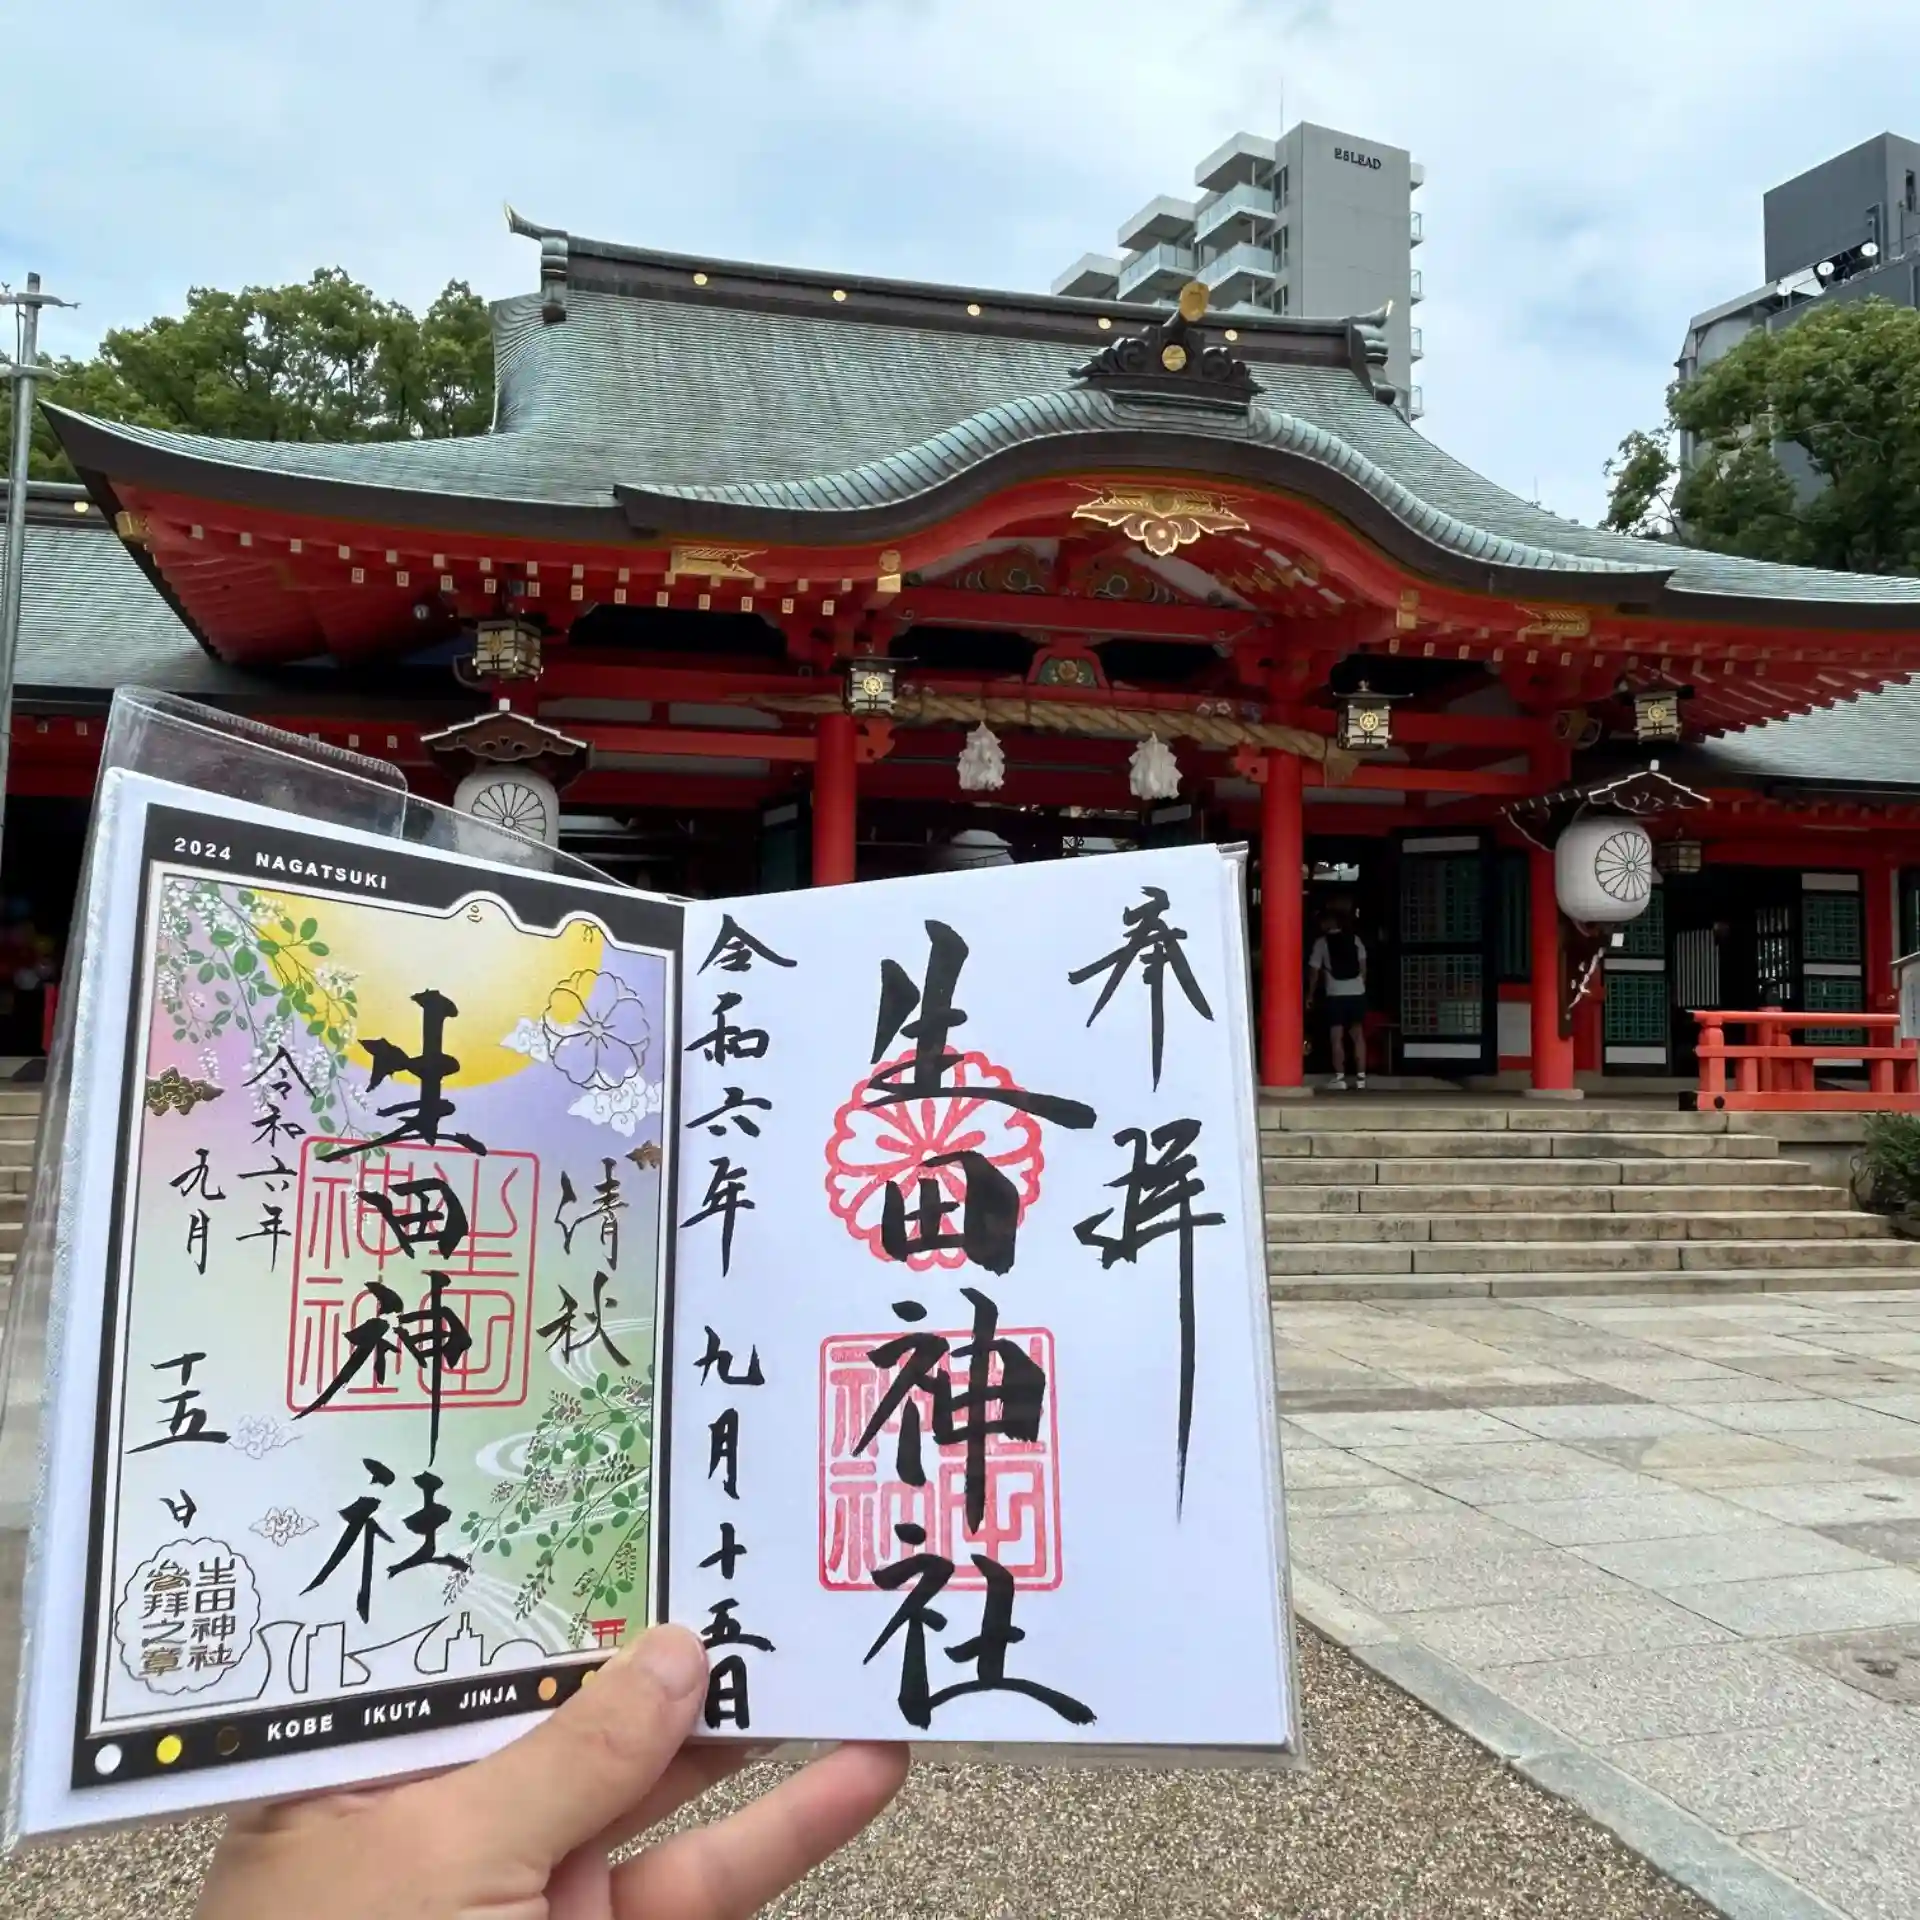 ESLEAD
2024 NAGATSUKI
清秋
生田神社
令和六年
九月
十五日
生田神社
生田神社
参拜之章
KOBE IKUTA JINJA
奉拝
生田神社
生田神社
令和六年九月十五日